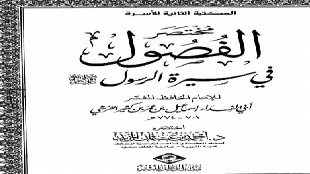 المكتبة الثانية للأسرة
مختصر
الفصول
في سيرة الرسول ﷺ
للإمام الحافظ المفسر
أبي الفداء إسماعيل بن عمر بن كثير القرشي
٧٠١ - ٧٧٤ هـ
اختصره
د. أحمد بن عثمان المزيد